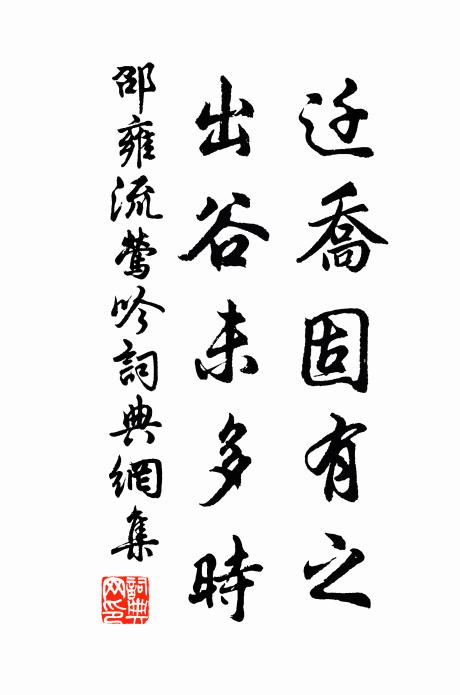 迁喬固有之
出谷未多時
邵雍流鶯吟詞典網集
詞典
网印